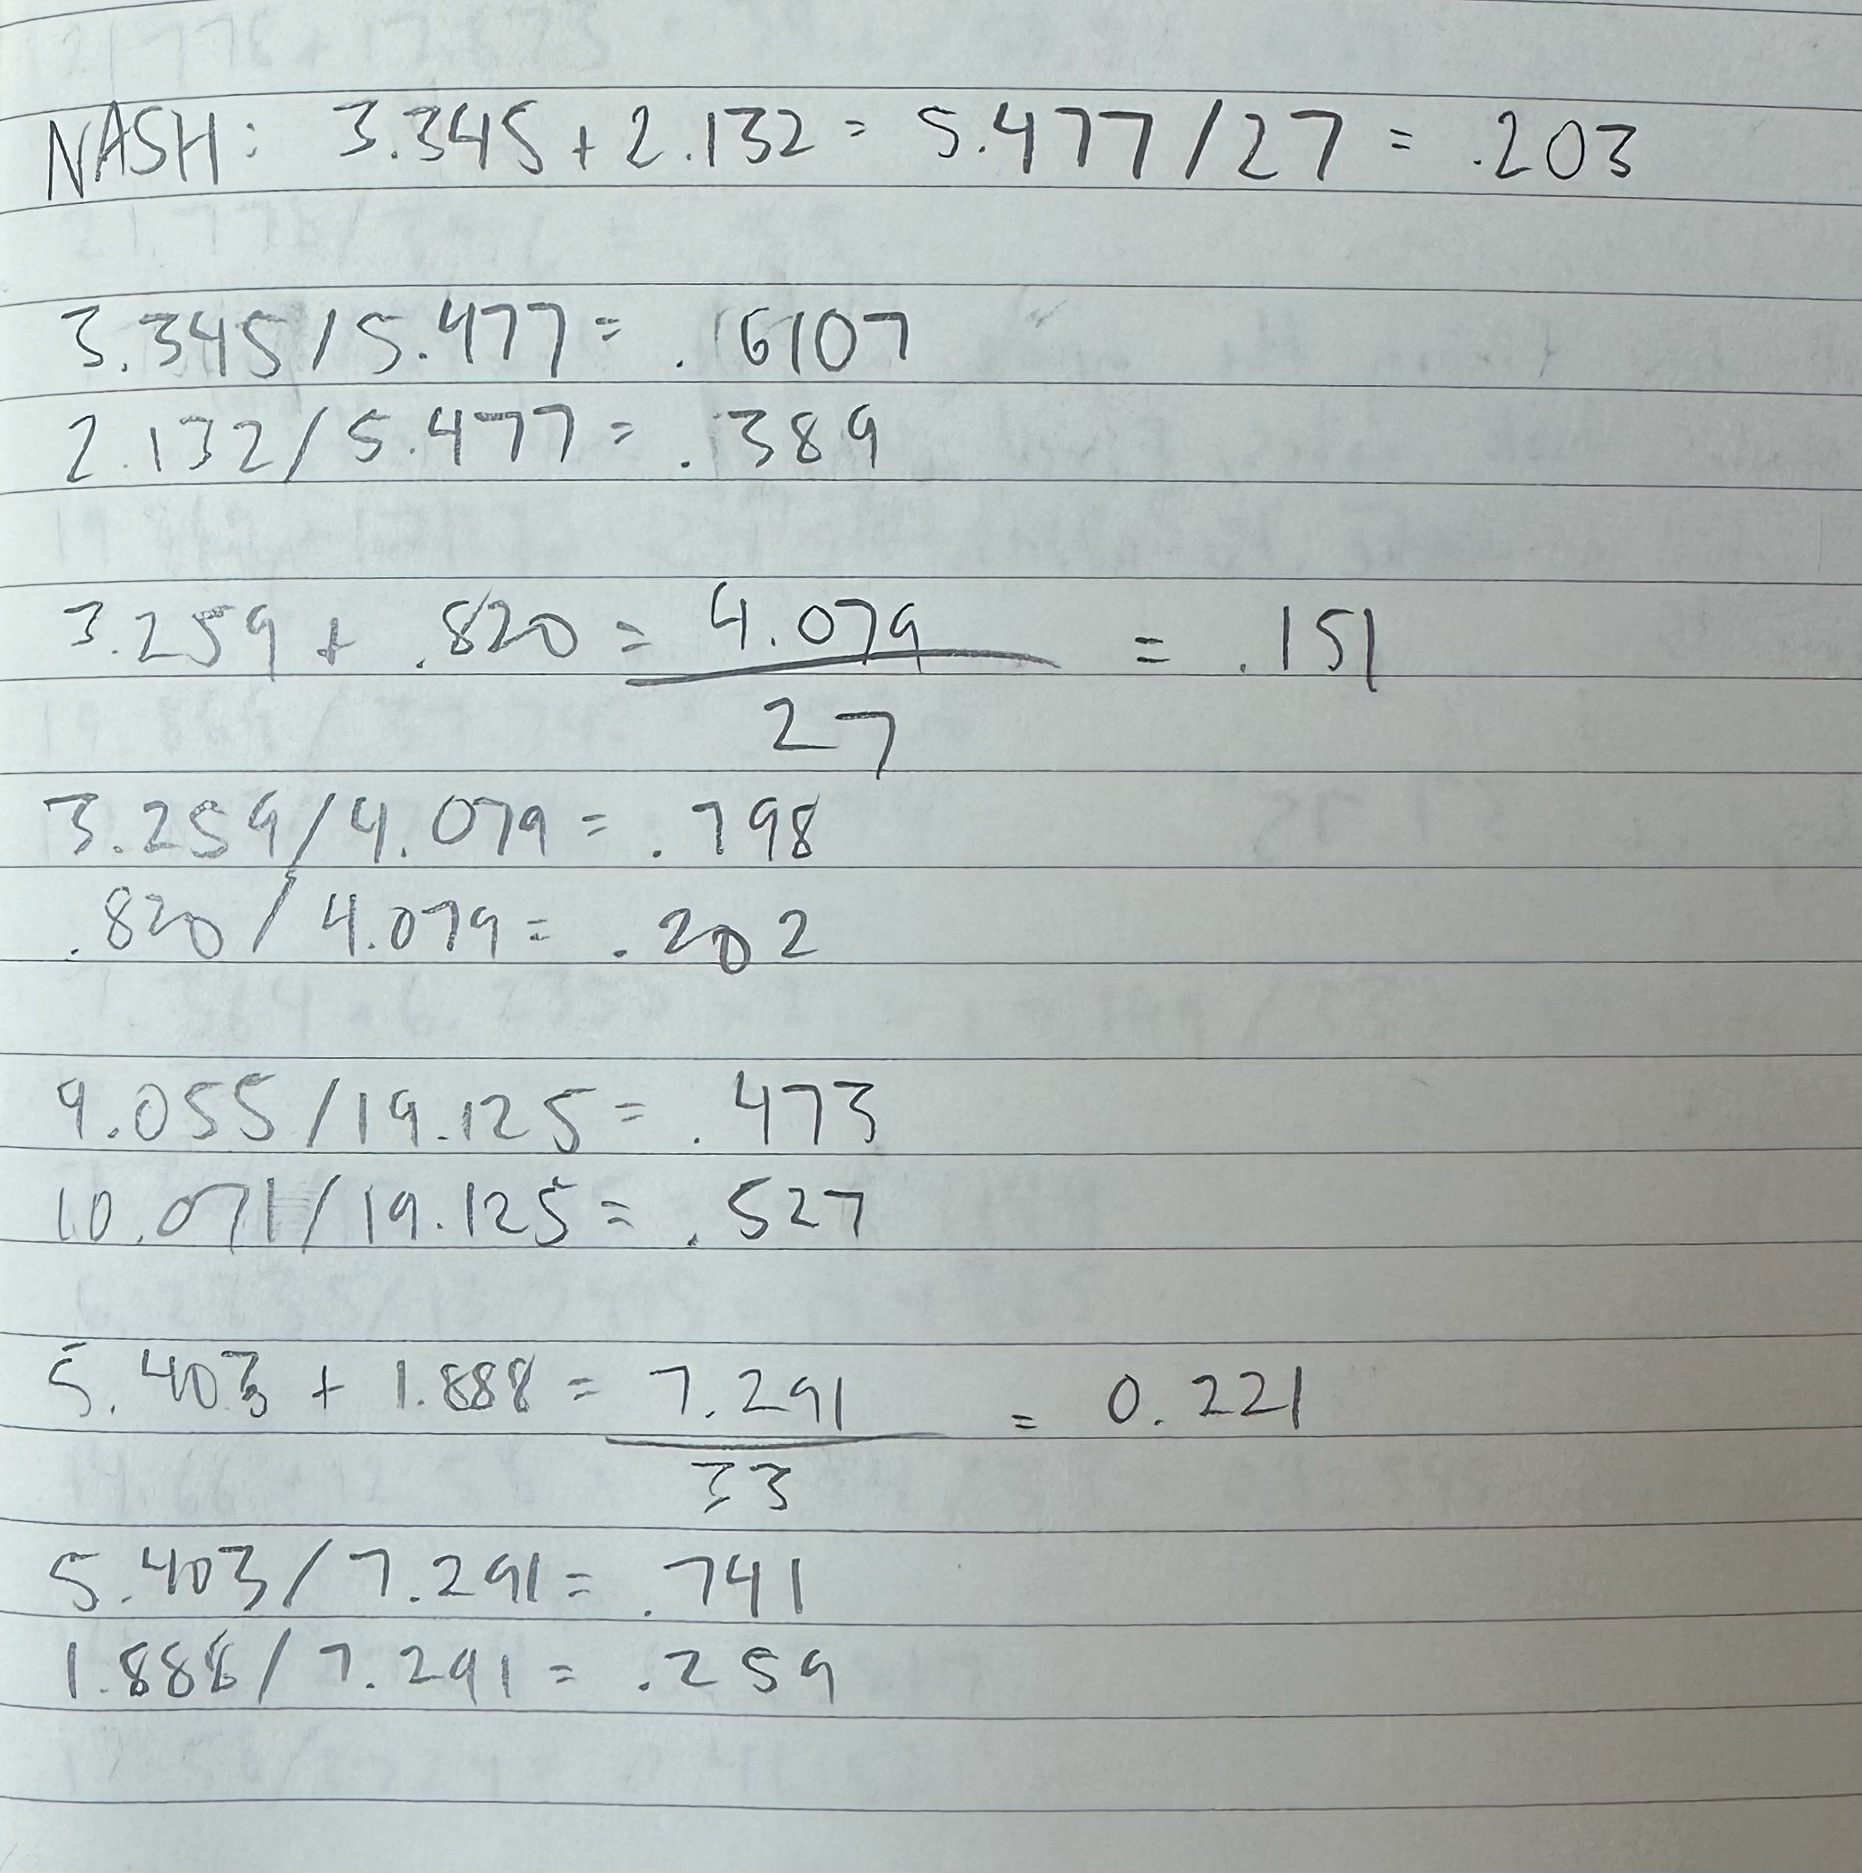 NASH: 3.345 + 2.132 = 5.477 / 27 = .203
3.345 / 5.477 = .6107
2.132 / 5.477 = .389
3.259 + .820 = 4.079 = .151
27
3.259 / 4.079 = .798
.820 / 4.079 = .202
9.055 / 19.125 = .473
10.071 / 19.125 = .527
5.403 + 1.888 = 7.291 = 0.221
33
5.403 / 7.291 = .741
1.888 / 7.291 = .259